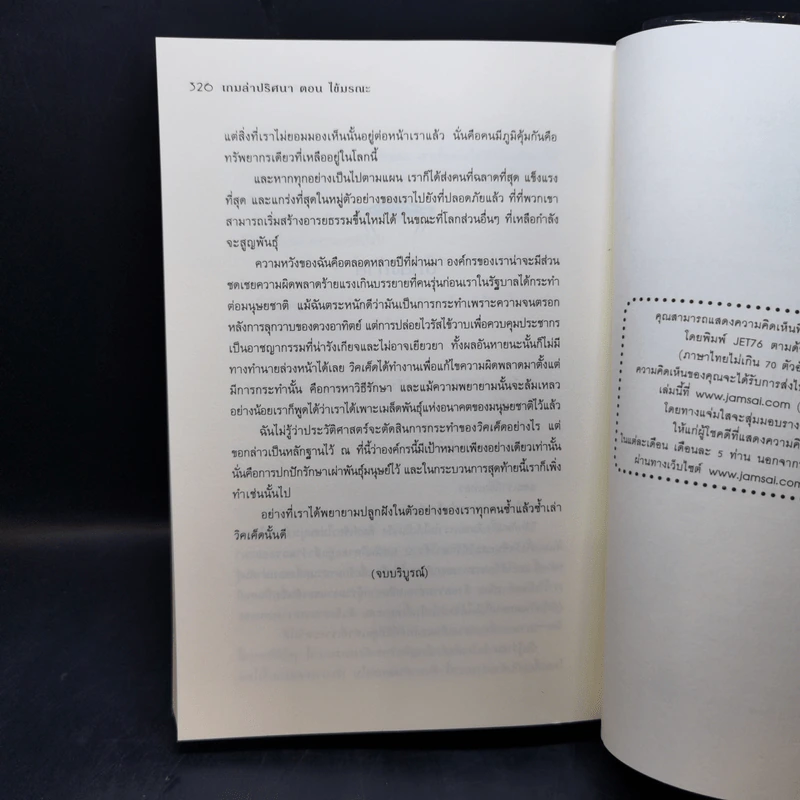 326 เกมล่าปริศนา ตอน ไข้มรณะ
แต่สิ่งที่เราไม่ยอมมองเห็นนั้นอยู่ต่อหน้าเราแล้ว นั่นคือคนมีภูมิคุ้มกันคือ
ทรัพยากรเดียวที่เหลืออยู่ในโลกนี้
และหากทุกอย่างเป็นไปตามแผน เราก็ได้ส่งคนที่ฉลาดที่สุด แข็งแรง
ที่สุด และแกร่งที่สุดในหมู่ตัวอย่างของเราไปยังที่ปลอดภัยแล้ว ที่ที่พวกเขา
สามารถเริ่มสร้างอารยธรรมขึ้นใหม่ได้ ในขณะที่โลกส่วนอื่นๆ ที่เหลือกำลัง
จะสูญพันธุ์
ความหวังของฉันคือตลอดหลายปีที่ผ่านมา องค์กรของเราน่าจะมีส่วน
ชดเชยความผิดพลาดร้ายแรงเกินบรรยายที่คนรุ่นก่อนเราในรัฐบาลได้กระทำ
ต่อมนุษยชาติ แม้ฉันตระหนักดีว่ามันเป็นการกระทำเพราะความจนตรอก
หลังการลุกวาบของดวงอาทิตย์ แต่การปล่อยไวรัสไข้วาบเพื่อควบคุมประชากร
เป็นอาชญากรรมที่น่ารังเกียจและไม่อาจเยียวยา ทั้งผลอันหายนะนั้นก็ไม่มี
ทางทำนายล่วงหน้าได้เลย วิคเค็ดได้ทำงานเพื่อแก้ไขความผิดพลาดมาตั้งแต่
มีการกระทำนั้น คือการหาวิธีรักษา และแม้ความพยายามนั้นจะล้มเหลว
อย่างน้อยเราก็พูดได้ว่าเราได้เพาะเมล็ดพันธุ์แห่งอนาคตของมนุษยชาติไว้แล้ว
ฉันไม่รู้ว่าประวัติศาสตร์จะตัดสินการกระทำของวิคเค็ดอย่างไร แต่
ขอกล่าวเป็นหลักฐานไว้ ณ ที่นี้ว่าองค์กรนี้มีเป้าหมายเพียงอย่างเดียวเท่านั้น
นั่นคือการปกปักรักษาเผ่าพันธุ์มนุษย์ไว้ และในกระบวนการสุดท้ายนี้เราก็เพิ่ง
ทำเช่นนั้นไป
อย่างที่เราได้พยายามปลูกฝังในตัวอย่างของเราทุกคนซ้ำแล้วซ้ำเล่า
วิคเค็ดนั้นดี
(จบบริบูรณ์)
คุณสามารถแสดงความคิดเห็น
โดยพิมพ์ JET76 ตาม
(ภาษาไทยไม่เกิน 70
ความคิดเห็นของคุณจะได้รับการส่ง
เล่มนี้ที่ www.jamsai.com
โดยทางแจ่มใสจะสุ่มมอบ
ให้แก่ผู้โชคดีที่แสดงความ
ในแต่ละเดือน เดือนละ 5 ท่าน นอกจาก
ผ่านทางเว็บไซต์ www.jamsai.com